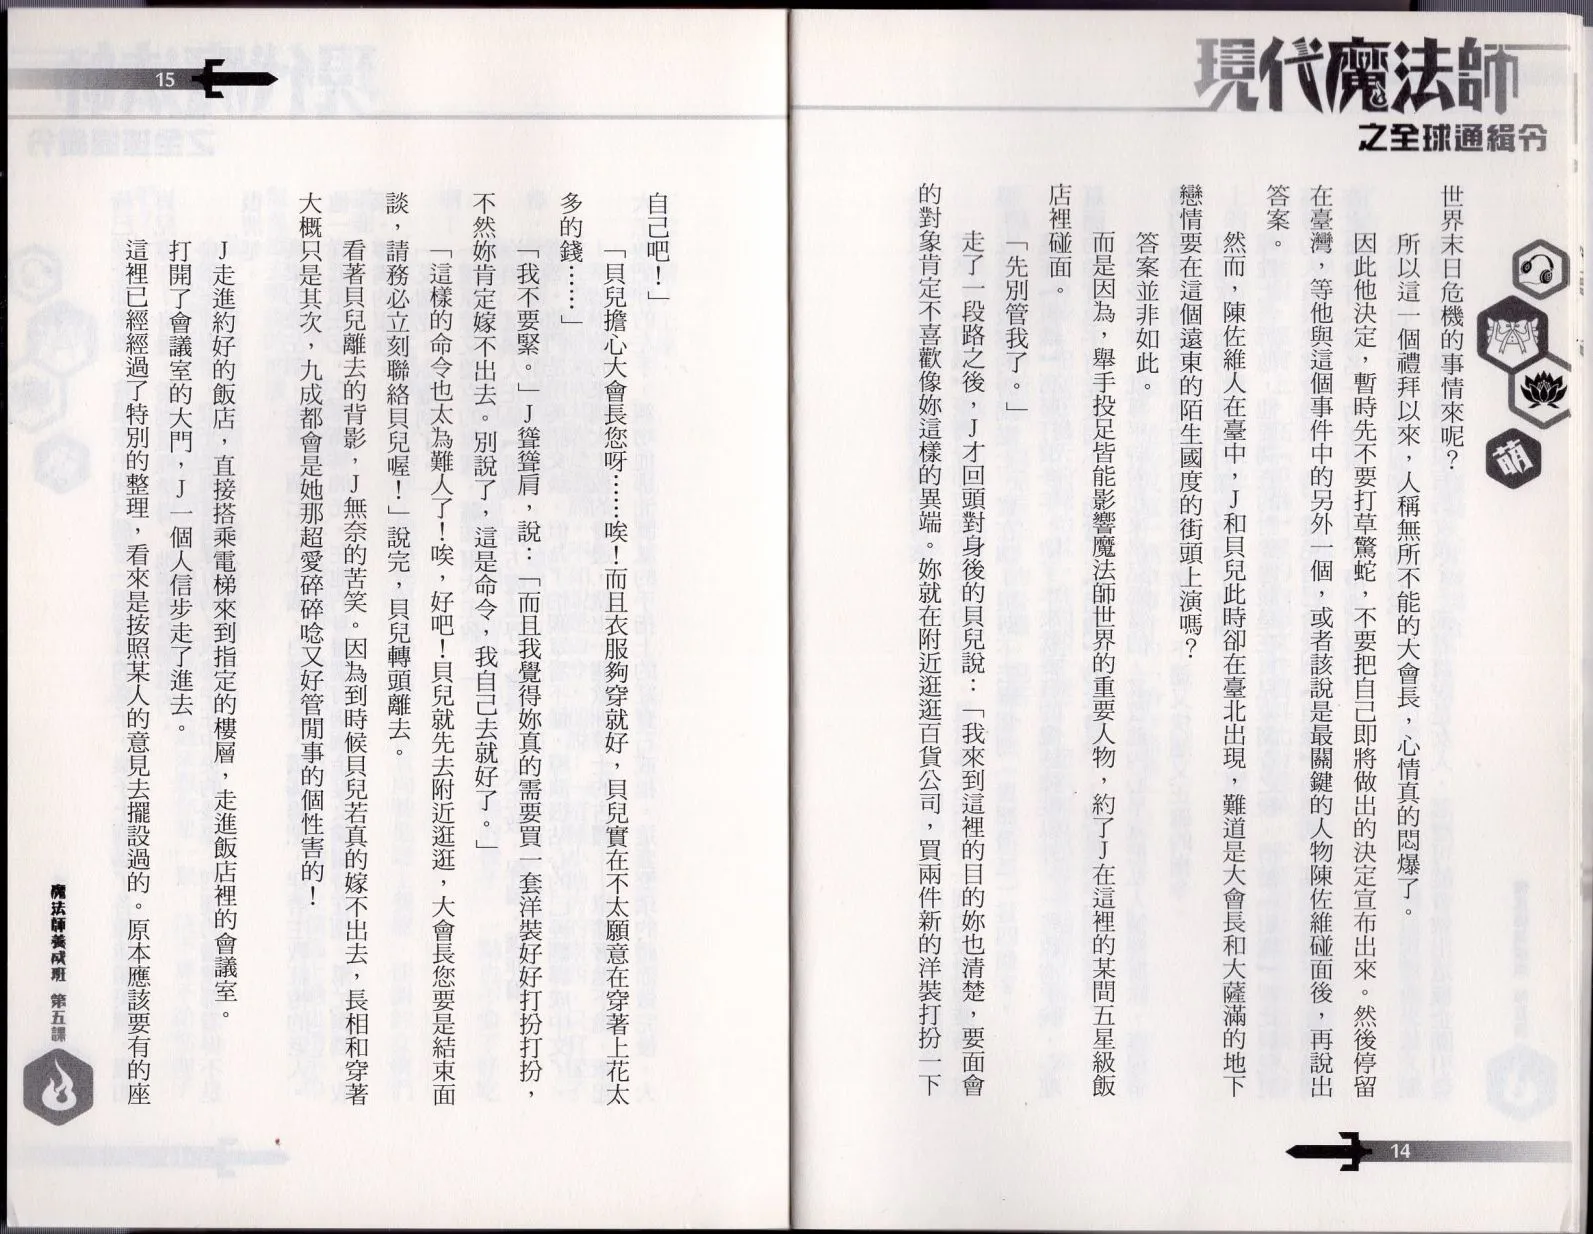 現代魔法師
之全球通緝令
萌
世界末日危機的事情來呢？
所以這一個禮拜以來，人稱無所不能的大會長，心情真的悶爆了。
因此他決定，暫時先不要打草驚蛇，不要把自己即將做出的決定宣布出來。然後停留
在臺灣，等他與這個事件中的另外一個，或者該說是最關鍵的人物陳佐維碰面後，再說出
答案。
然而，陳佐維人在臺中，J和貝兒此時卻在臺北出現，難道是大會長和大薩滿的地下
戀情要在這個遠東的陌生國度的街頭上演嗎？
答案並非如此。
而是因為，舉手投足皆能影響魔法師世界的重要人物，約了J在這裡的某間五星級飯
店裡碰面。
「先別管我了。」
走了一段路之後，J才回頭對身後的貝兒說：「我來到這裡的目的妳也清楚，要面會
的對象肯定不喜歡像妳這樣的異端。妳就在附近逛逛百貨公司，買兩件新的洋裝打扮一下
14
15
自己吧！」
「貝兒擔心大會長您呀……唉！而且衣服夠穿就好，貝兒實在不太願意在穿著上花太
多的錢……」
「我不要緊。」J聳聳肩，說：「而且我覺得妳真的需要買一套洋裝好好打扮打扮，
不然妳肯定嫁不出去。別說了，這是命令，我自己去就好了。」
「這樣的命令也太為難人了！唉，好吧！貝兒就先去附近逛逛，大會長您要是結束面
談，請務必立刻聯絡貝兒喔！」說完，貝兒轉頭離去。
看著貝兒離去的背影，J無奈的苦笑。因為到時候貝兒若真的嫁不出去，長相和穿著
大概只是其次，九成都會是她那超愛碎碎唸又好管閒事的個性害的！
J走進約好的飯店，直接搭乘電梯來到指定的樓層，走進飯店裡的會議室。
打開了會議室的大門，J一個人信步走了進去。
這裡已經經過了特別的整理，看來是按照某人的意見去擺設過的。原本應該要有的座
魔法師養成班 第五課